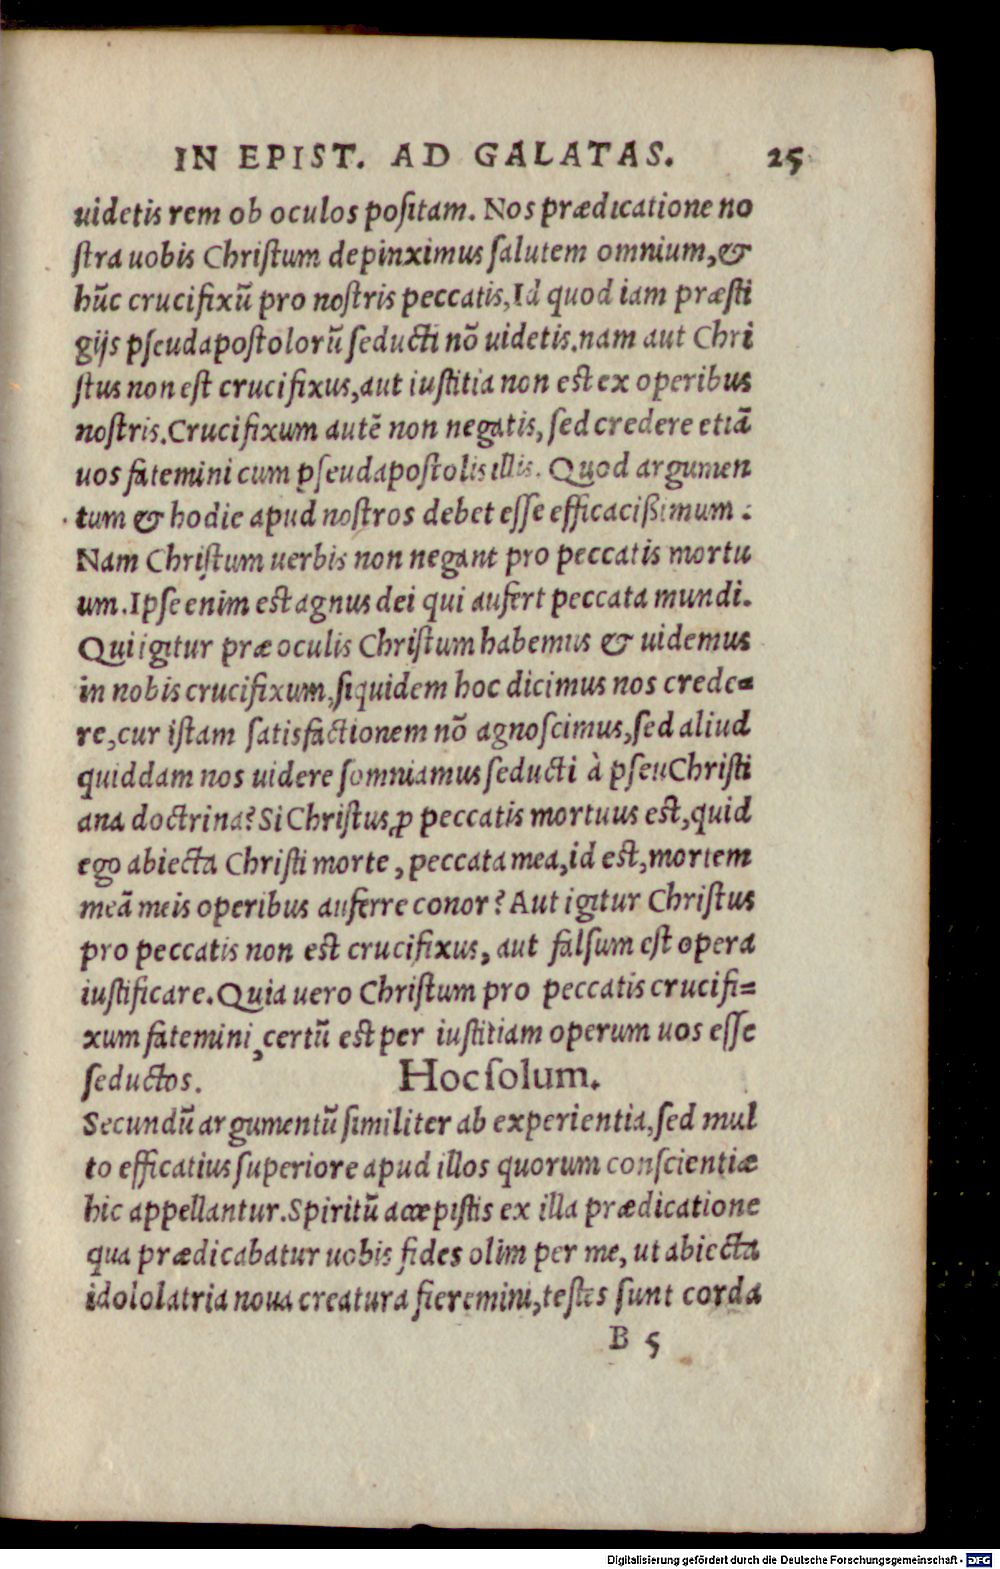 IN EPIST. AD GALATAS. 25
uidetis rem ob oculos poſitam. Nos prædicatione no
ſtra uobis Chriſtum depinximus ſalutem omnium, &
hūc crucifixū pro noſtris peccatis, Id quod iam præſti
gijs pſeudapoſtolorū ſeducti nō uidetis. nam aut Chri
ſtus non eſt crucifixus, aut iuſtitia non eſt ex operibus
noſtris. Crucifixum autē non negatis, ſed credere etiā
uos fatemini cum pſeudapoſtolis illis. Quod argumen
tum & hodie apud noſtros debet eſſe efficacißimum :
Nam Chriſtum uerbis non negant pro peccatis mortu
um. Ipſe enim eſt agnus dei qui aufert peccata mundi.
Qui igitur præ oculis Chriſtum habemus & uidemus
in nobis crucifixum, ſiquidem hoc dicimus nos crede=
re, cur iſtam satisfactionem nō agnoſcimus, ſed aliud
quiddam nos uidere ſomniamus ſeducti à pſeuChriſti
ana doctrina? Si Chriſtus ꝓ peccatis mortuus eſt, quid
ego abiecta Chriſti morte, peccata mea, id eſt, mortem
meā meis operibus auferre conor? Aut igitur Chriſtus
pro peccatis non eſt crucifixus, aut falſum eſt opera
iuſtificare. Quia uero Chriſtum pro peccatis crucifi=
xum fatemini, certū eſt per iuſtitiam operum uos eſſe
ſeductos. Hoc ſolum.
Secundū argumentū ſimiliter ab experientia, ſed mul
to efficatius ſuperiore apud illos quorum conſcientiæ
hic appellantur. Spiritū accepiſtis ex illa prædicatione
qua prædicabatur uobis fides olim per me, ut abiecta
idololatria noua creatura fieremini, teſtes ſunt corda
B 5
Digitalisierung gefördert durch die Deutsche Forschungsgemeinschaft - DFG